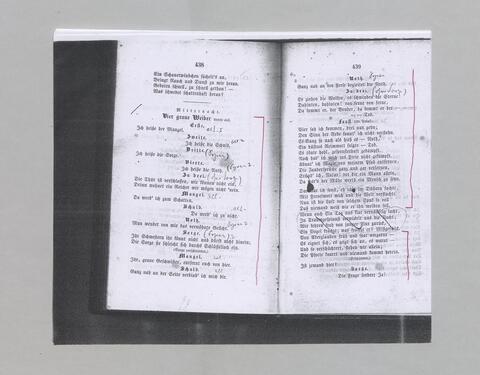 438
Ein Schauerwindchen fächelt's an,
Bringt Rauch und Dunst zu mir heran.
Geboten schnell, zu schnell gethan! —
Was schwebet schattenhaft heran?
Mitternacht.
Vier graue Weiber treten auf.
Erste.
Ich heiße der Mangel.
Zweite.
Ich heiße die Schuld.
Dritte.
Ich heiße die Sorge.
Vierte.
Ich heiße die Noth.
Zu drei.
Die Thür ist verschlossen, wir können nicht ein,
Drinnen wohnet ein Reicher wir mögen nicht 'nein.
Mangel.
Da werd' ich zum Schatten.
Schuld.
Da werd' ich zu nicht.
Noth.
Man wendet von mir das verwöhnte Gesicht.
Sorge.
Ihr Schwestern ihr könnt nicht und dürft nicht hinein;
Die Sorge sie schleicht sich durchs Schlüsselloch ein.
Mangel.
Ihr, graue Geschwister, entfernt euch von hier.
Schuld.
Ganz nah an der Seite verbind' ich mich dir.
439
Noth.
Ganz nah an der Ferse begleitet die Noth.
Zu drei.
Es ziehen die Wolken, es schwinden die Sterne!
Dahinten, dahinten! von ferne von ferne,
Da kommt er, der Bruder, da kommt er der
— — — Tod.
Faust
Vier sah ich kommen, drei nur gehn;
Den Sinn der Rede konnt' ich nicht verstehn.
Es klang so nach als hieß es — Noth,
Ein düstres Reimwort folgte — Tod.
Es tönte hohl, gespensterhaft gedämpft.
Noch hab' ich mich ins Freie nicht gekämpft.
Könnt' ich Magie von meinem Pfad entfernen,
Die Zaubersprüche ganz und gar verlernen,
Stünd' ich, Natur! vor dir ein Mann allein,
Da wär's der Mühe werth ein Mensch zu seyn.
sonst, eh' ich's im Düstern suchte,
Mit Frevelwort mich und die Welt verfluchte.
Nun ist die Luft von solchem Spuk so voll
Daß niemand weiß wie er ihn meiden soll.
Wenn auch Ein Tag uns klar vernünftig lacht,
In Traumgespinnst verwickelt uns die Nacht;
Wir kehren froh von junger Flur zurück,
Ein Vogel krächzt; was krächzt er? Mißgeschick.
Von Aberglauben früh und spat umgarnt
Es eignet sich, es zeigt sich an, es warnt
und so verschüchtert, stehen wir allein;
Die Pforte knarrt und niemand kommt herein.
Ist jemand hier?
Sorge.
Die Frage fordert Ja!